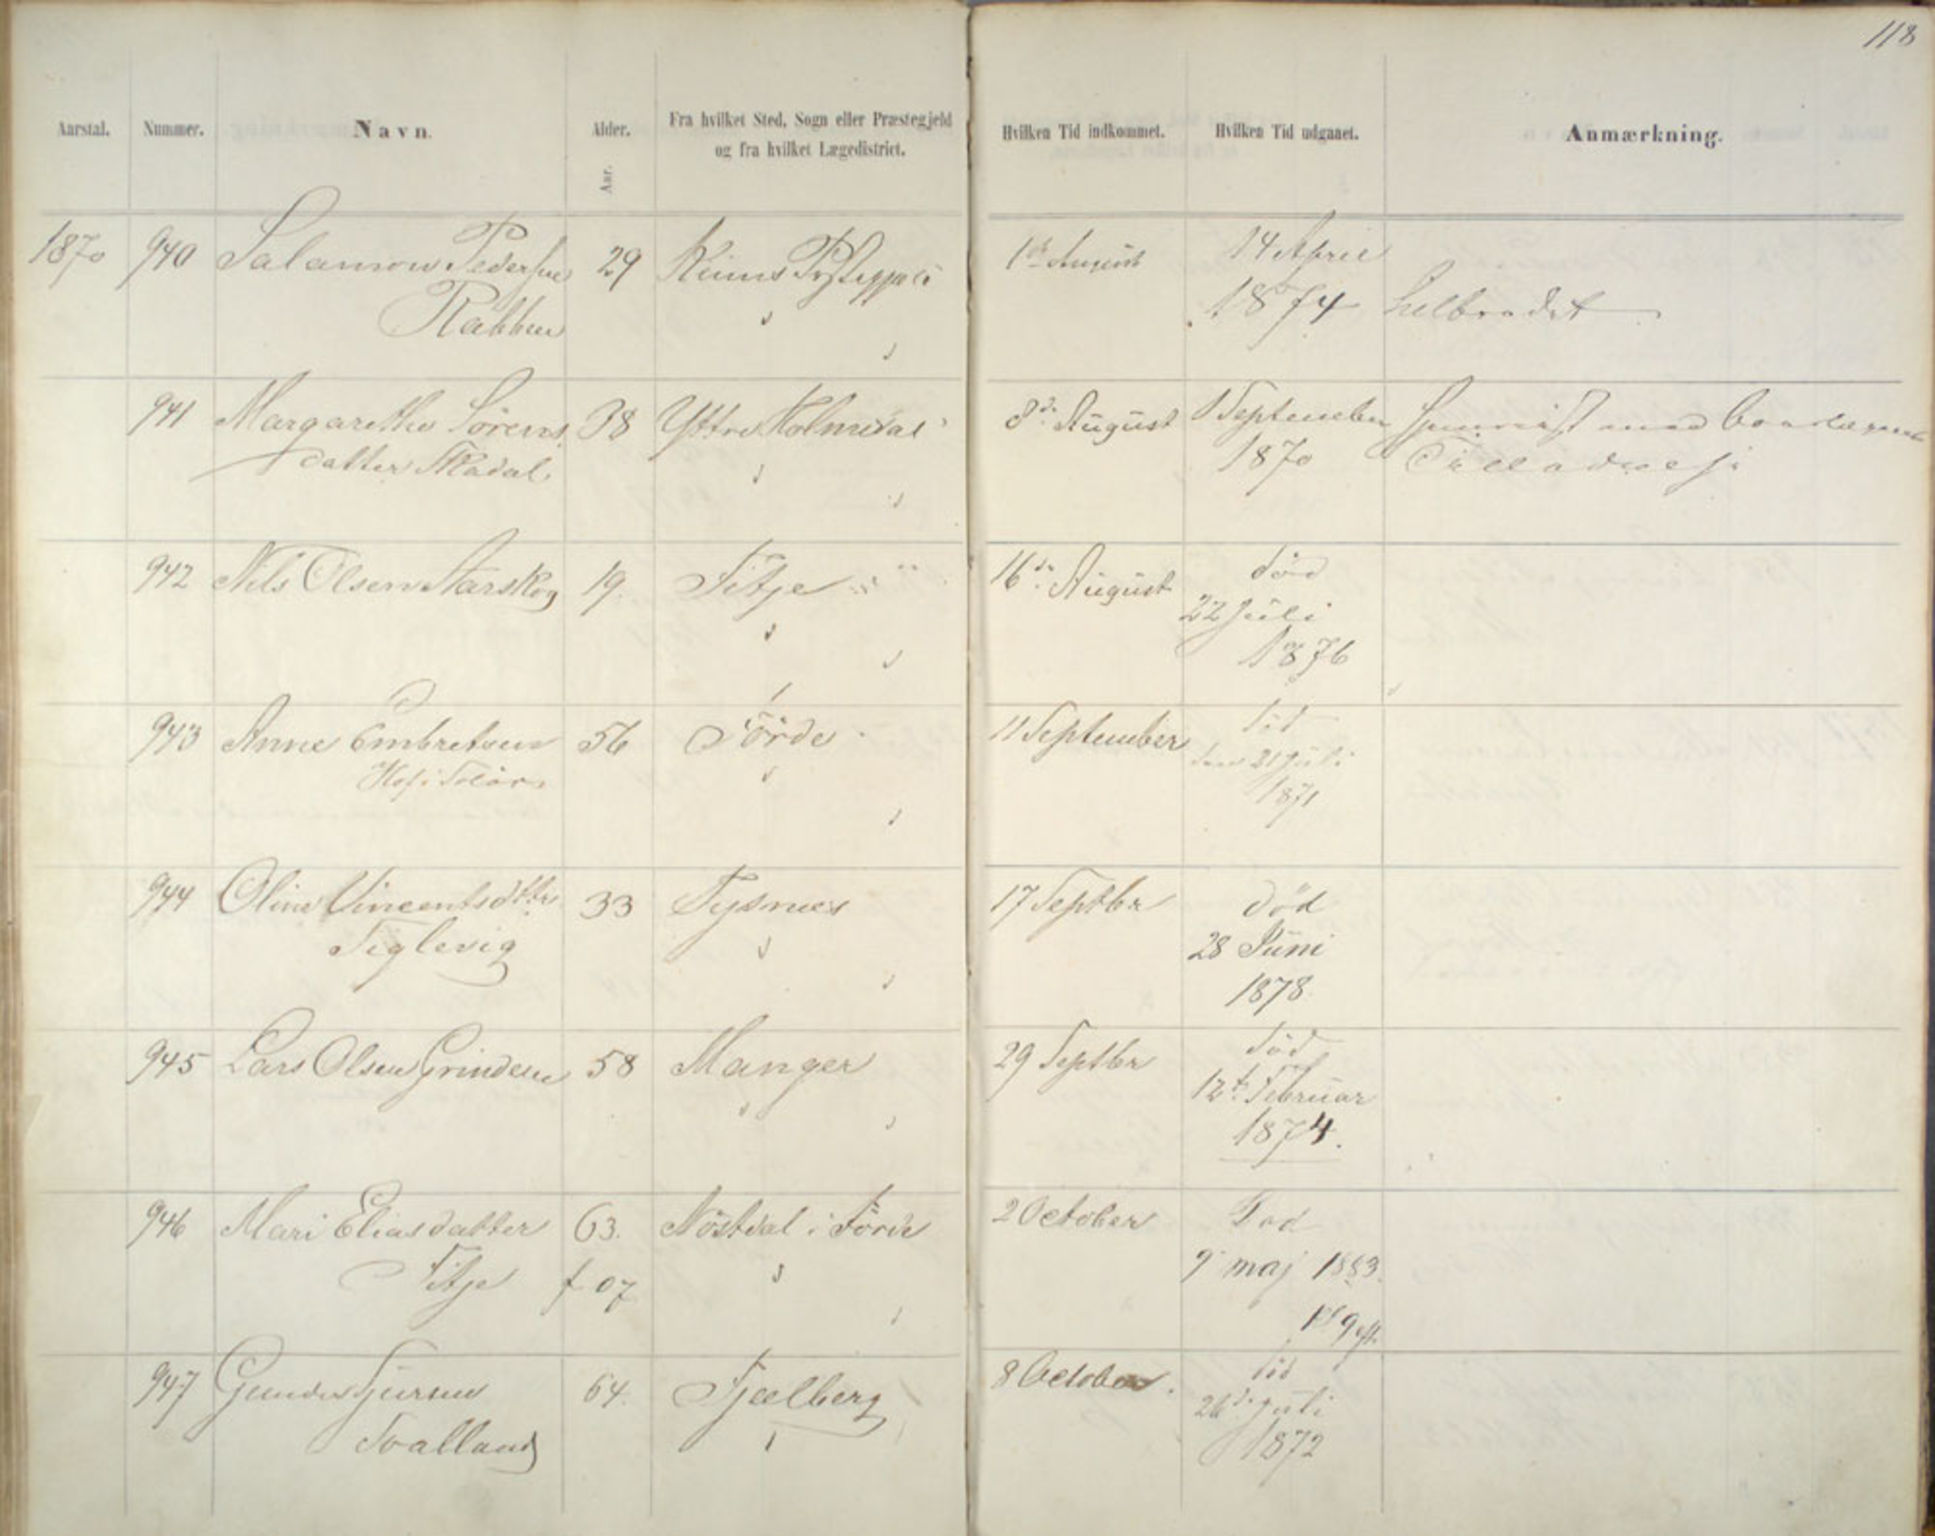 118
Aarstal. Nummer. Navn. Alder. Fra hvilket Sted, Sogn eller Præstegjeld Hvilken Tid indkommet. Hvilken Tid udgaaet. Anmærkning.
Aar. og fra hvilket Lægedistrict.
1870 940 Salamon Pedersen 29 Kinns 1ste August 14 April
Rabben 1874 helbredet
941 Margarethe Sørens 38 Yttre Holmedal 8de August 1 September
datter Skadal 1870
942 Nils Olsen Aarskog 19. Fitje 16de August død
22 Juli
1876
943 Anne Embretsen 56 Förde 11 September död
Hof i Solör den 21 Juli
1871
944 Oline Vincentsdttr 33 Tysnes 17 Septbr Död
Teglevig 28 Juni
1878
945 Lars Olsen Grindem 58 Manger 29 Septbr död
12te Februar
1874.
946 Mari Eliasdatter 63. Nöstdal i Förde 2 October Död
Fitje f 07 9 maj 1883.
Kl 9 eft.
947 64. Fjælberg 8 October. död
Tvalland 26de Juli
1872